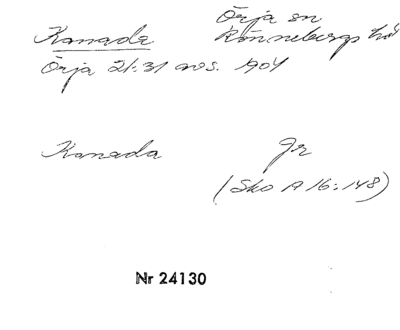 Kanada Örja sn
Rönnebergs hd
Örja 21:31 avs. 1904
Kanada Jr
(Sko A 16:148)
Nr 24130